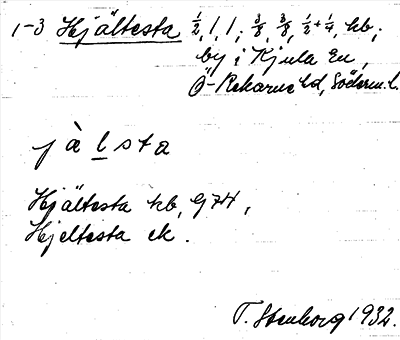 1-3 Hjältesta 1/2, 1, 1; 3/8, 3/8, 1/2 + 1/4, hb,
by i Kjula sn,
Ö-Rekarne hd, Söderm. l.
jàlsta
Hjältesta hb, G74,
Hjeltesta ek.
T. Stenborg 1932.